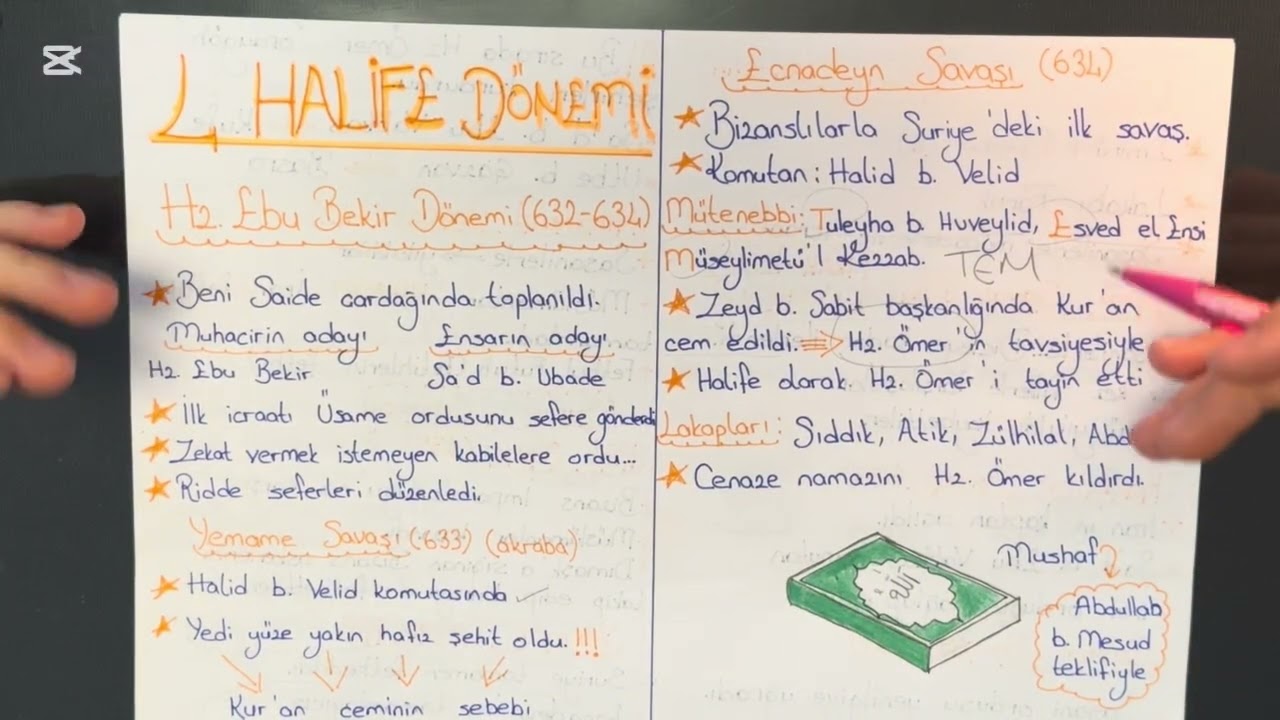 4 HALİFE DÖNEMİ
Hz. Ebu Bekir Dönemi (632-634)
★ Beni Saide çardağında toplanıldı.
Muhacirin adayı Ensarın adayı
Hz. Ebu Bekir Sa'd b. Ubade
★ İlk icraatı Üsame ordusunu sefere gönderdi
★ Zekat vermek istemeyen kabilelere ordu...
★ Ridde seferleri düzenledi.
Yemame Savaşı (633) (akraba)
★ Halid b. Velid komutasında ✓
★ Yedi yüze yakın hafız şehit oldu.!!!
Kur'an ceminin sebebi
Ecnadeyn Savaşı (634)
★ Bizanslılarla Suriye'deki ilk savaş.
★ Komutan: Halid b. Velid
Mütenebbi: Tuleyha b. Huveylid, Esved el Ensi
Müseylimetü'l Kezzab. TEM
★ Zeyd b. Sabit başkanlığında Kur'an
cem edildi. ⇒ Hz. Ömer'in tavsiyesiyle
★ Halife olarak Hz. Ömer'i tayin etti
Lakapları: Sıddık, Atik, Zülhilal,
★ Cenaze namazını Hz. Ömer kıldırdı.
الله
Mushaf
Abdullab
b. Mesud
teklifiyle